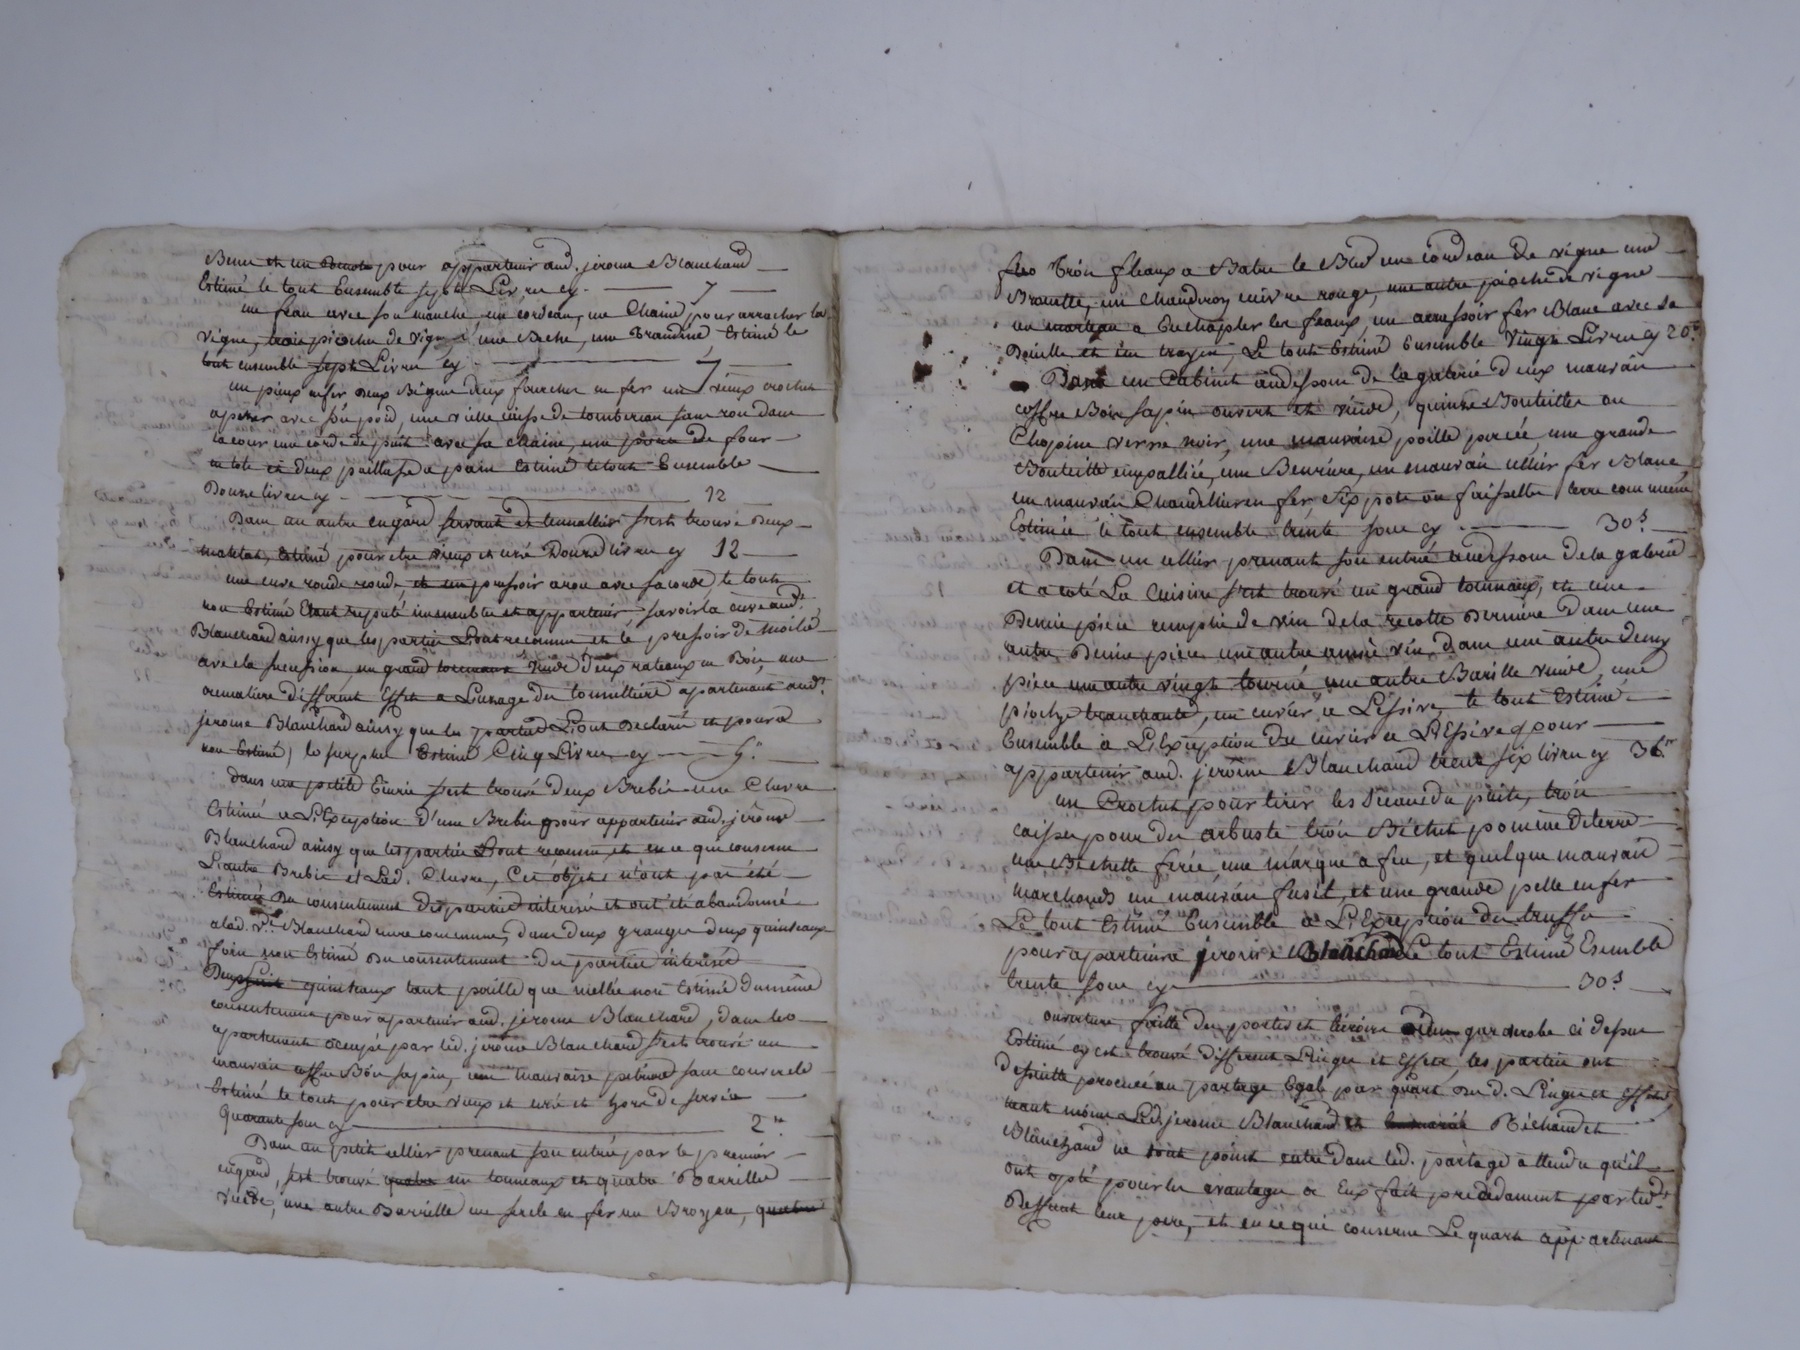 pour appartenir aud. jerome Blanchard
Estimé le tout Ensemble sept Livres cy 7
un fleau avec son manche, un cordeau, une Chaine pour arracher la
vigne, trois pioches de vigne, une Beche, une Estimé le
tout ensemble sept Livres cy 7
un pieux en fer deux deux fourches en fer un vieux crochet
a peser avec son poid, une vielle caisse de tombereau sans roue dans
la cour une corde de puit avec sa chaine, une de four
en tole et deux paillasse a pain Estimé le tout Ensemble
Douze livres cy 12
Dans un autre engard servant de s'est trouvé Deux
Estimé pour etre vieux et usé Douze livres cy 12
une cuve ronde et un pressoir avec sa corde, le tout
non Estimé Etant reputé immeuble et appartenir savoir la cuve aud.
Blanchard ainsy que les parties L'ont reconnu et le pressoir de moitié
avec la succession, un grand tonneaux vuide deux rateaux en Bois, une
different Effet a L'usage du tonnellier apartenant aud.
jerome Blanchard ainsy que les parties L'ont Declaré et pour ce
non Estimé, le surplus Estimé Cinq Livres cy 5"
dans une petite Ecurie s'est trouvé deux Brebis une Chevre
Estimé a L'Exception d'une Brebis pour appartenir aud. jerome
Blanchard ainsy que les parties L'ont reconnu, et en ce qui conserne
L'autre Brebis et Lad. Chevre, Ces objets n'ont pas été
Estimés Du consentement des parties interesé et ont été abandonné
a lad. Ve. Blanchard mere commune, dans deux granges deux quinteaux
foin non Estimé Du consentement des parties interesé
quinteaux tant paille que mellée non Estimé du même
consentement pour apartenir aud. jerome Blanchard, dans les
apartement occupé par led. jerome Blanchard s'est trouvé un
mauvais coffre Bois sapin, une mauvaise petriere sans couvercle
Estimé le tout pour etre vieux et usé et hors de service
Quarante sous cy 2"
Dans un petit cellier prenant son entrée par le premier
engard, s'est trouvé un tonneaux et quatre Barrilles
vuide, une autre Barrille une sercle en fer un Broyon,
Trois fleaux a Batre le Bled un cordeau De vigne une
Brouette, un Chaudron cuivre rouge, une autre pioche de vigne
un marteau a Enchapler les feaux, un arrosoir fer Blanc avec sa
Douille et un Le tout Estimé Ensemble Vingt Livres cy 20"
Dans un Cabinet audessous de la galerie deux mauvais
coffre Bois sapin ouvert et vuide, quinze Bouteilles ou
Chopine verre noir, une mauvaise poille percée, une grande
Bouteille empalliée, une Beuriere, un mauvais cellier fer Blanc
un mauvais Chandellier en fer six pots ou faisselles terre commune
Estimée le tout ensemble trente sous cy 30s
Dans un cellier prenant son entrée audessous de la galerie
et a coté La Cuisine s'est trouvé un grand tonneaux, et une
Demie piece remplie de vin de la recolte Derniere dans une
autre Demie piece une autre annee vin, dans une autre demy
piece une autre vingt tourné, une autre Barille vuide, une
pioche tranchante, un cuvier a Lessive, le tout Estimé
Ensemble a L'Exception du cuvier a L'Essive pour
appartenir aud. jerome Blanchard trente six livres cy 36"
un Crochet pour tirer les seaux du puits, trois
caisse pour des arbuste trois Béchet pomme de terre
une Bechette ferée une marque a feu, et quelque mauvais
marchonds un mauvais fusil, et une grande pelle en fer
Le tout Estimé Ensemble a L'Exception des truffe
pour apartenir a jerome Blanchard Le tout Estimé Esemble
trente sous cy 30s
ouverture faitte des portes et tiroirs d'un garderobe ci dessus
Estimé cy est trouvé different Linges et Effets, les parties ont
Desuitte procedé au partage Egal par quart Dud. Linge et effets,
neant moins Led. jerome Blanchard et Réchaud et
Blanchard ne sont point entré dans led. partage attendu qu'il
ont opté pour les avantages a Eux fait precedament par led.
Deffunt leur pere, et en ce qui conserne Le quart appartenant